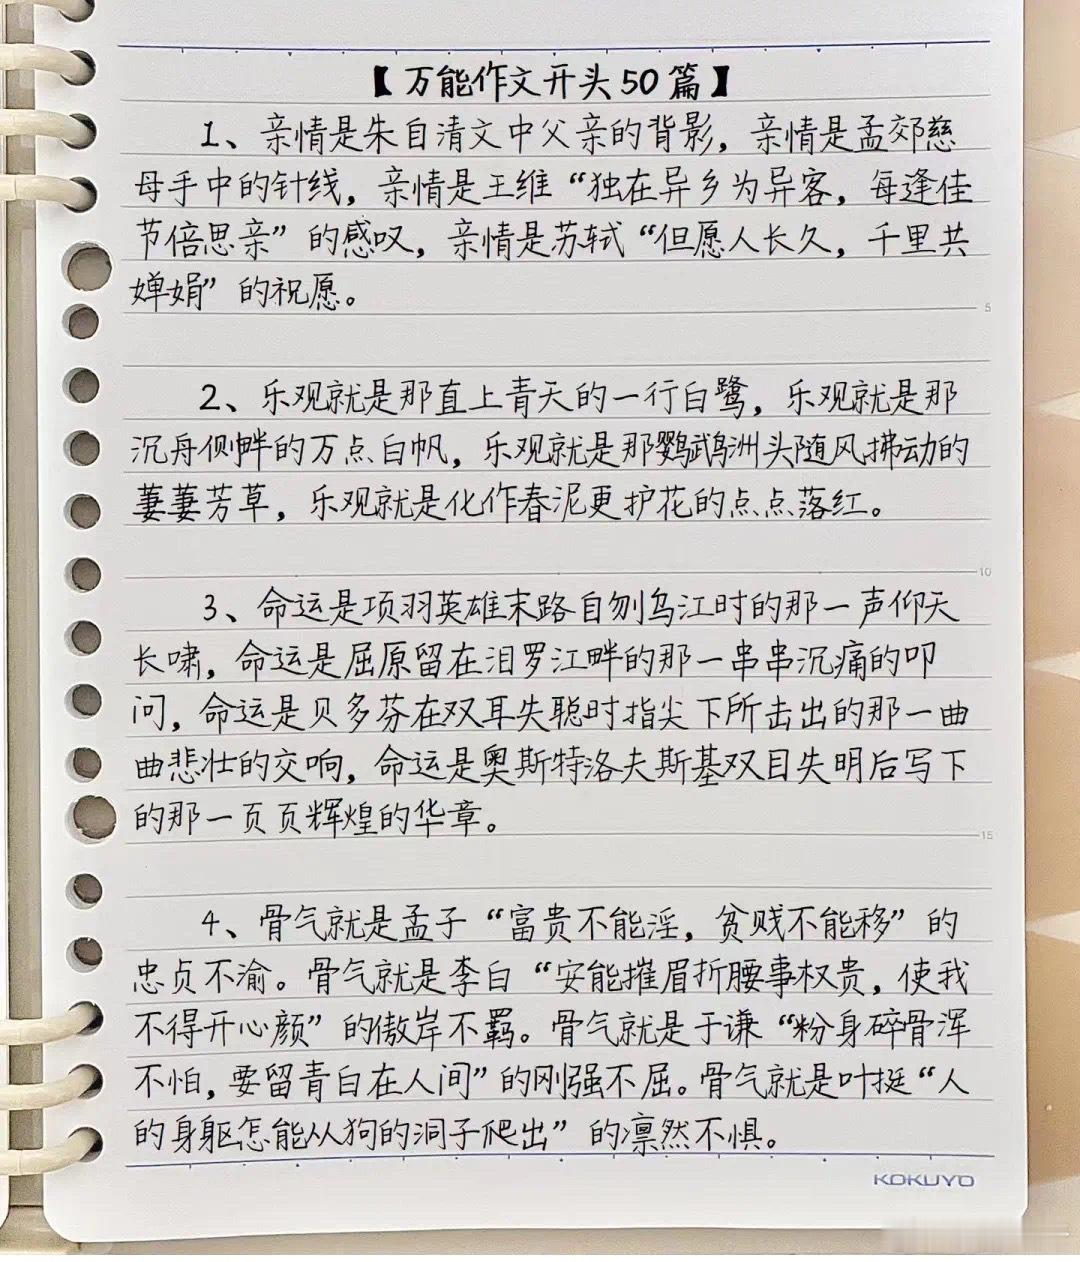 【万能作文开头50篇】
1、亲情是朱自清文中父亲的背影，亲情是孟郊慈
母手中的针线，亲情是王维“独在异乡为异客，每逢佳
节倍思亲”的感叹，亲情是苏轼“但愿人长久，千里共
婵娟”的祝愿。
5
2、乐观就是那直上青天的一行白鹭，乐观就是那
沉舟侧畔的万点白帆，乐观就是那鹦鹉洲头随风拂动的
萋萋芳草，乐观就是化作春泥更护花的点点落红。
10
3、命运是项羽英雄末路自刎乌江时的那一声仰天
长啸，命运是屈原留在汨罗江畔的那一串串沉痛的叩
问，命运是贝多芬在双耳失聪时指尖下所击出的那一曲
曲悲壮的交响，命运是奥斯特洛夫斯基双目失明后写下
的那一页页辉煌的华章。
15
4、骨气就是孟子“富贵不能淫，贫贱不能移”的
忠贞不渝。骨气就是李白“安能摧眉折腰事权贵，使我
不得开心颜”的傲岸不羁。骨气就是于谦“粉身碎骨浑
不怕，要留青白在人间”的刚强不屈。骨气就是叶挺“人
的身躯怎能从狗的洞子爬出”的凛然不惧。
KOKUYO